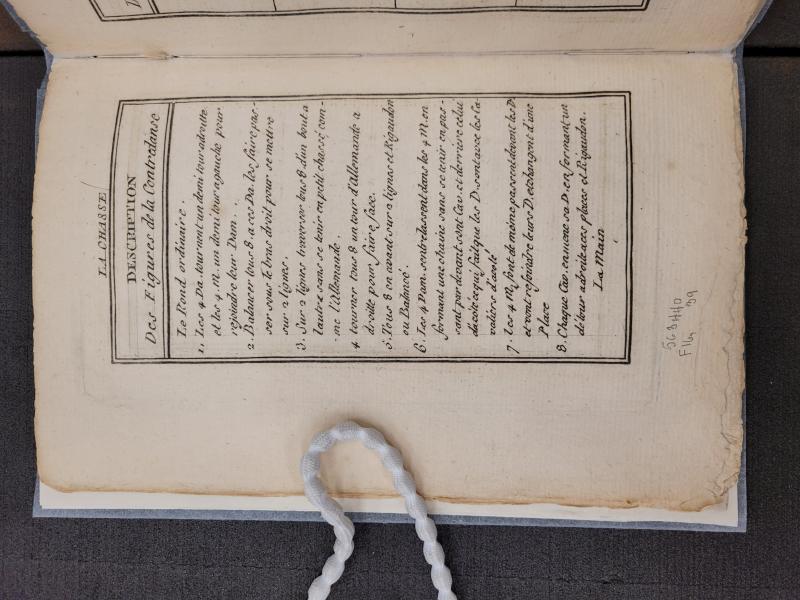 LA CHASSE
DESCRIPTION
Des Figures de la Contredanse
Le Rond ordinaire.
1. Les 4 Da. tournent un demi tour adroitte
et les 4 M. un demi tour agauche pour
rejoindre leur Dam.
2. Balancer tous 8 a ces Da. les faire pas-
ser sous le bras droit pour se mettre
sur 2 lignes.
3. Sur 2 lignes traverser tous 8 d'un bout a
lautre sans se tenir en petit chassé, com-
me l'Allemande.
4 tourner tous 8 un tour d'Allemande a
droitte pour faire face.
5. Tous 8 en avant sur 2 lignes et Rigaudon
ou Balancé.
6. Les 4 Dam. sentrelassent dans les 4 M. en
formant une chaine sans se tenir en pas-
sant par devant son Cav. et derriere celui
du côté ce qui fait que les D. sont avec les Ca-
valiers d'acolé
7. Les 4 M. font de même passent devant les D.
et vont rejoindre leurs D. et changent d'une
Place
8. Chaque Cav. ramene sa D. en formant un
de tour a droite a ces places et Rigaudon.
La Main
563440
F16